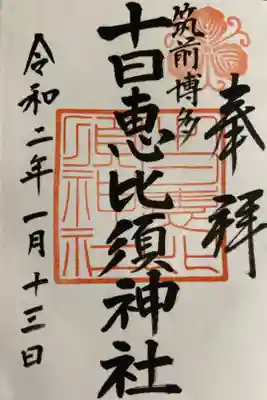 奉拝
筑前博多
十日恵比須神社
令和二年一月十三日